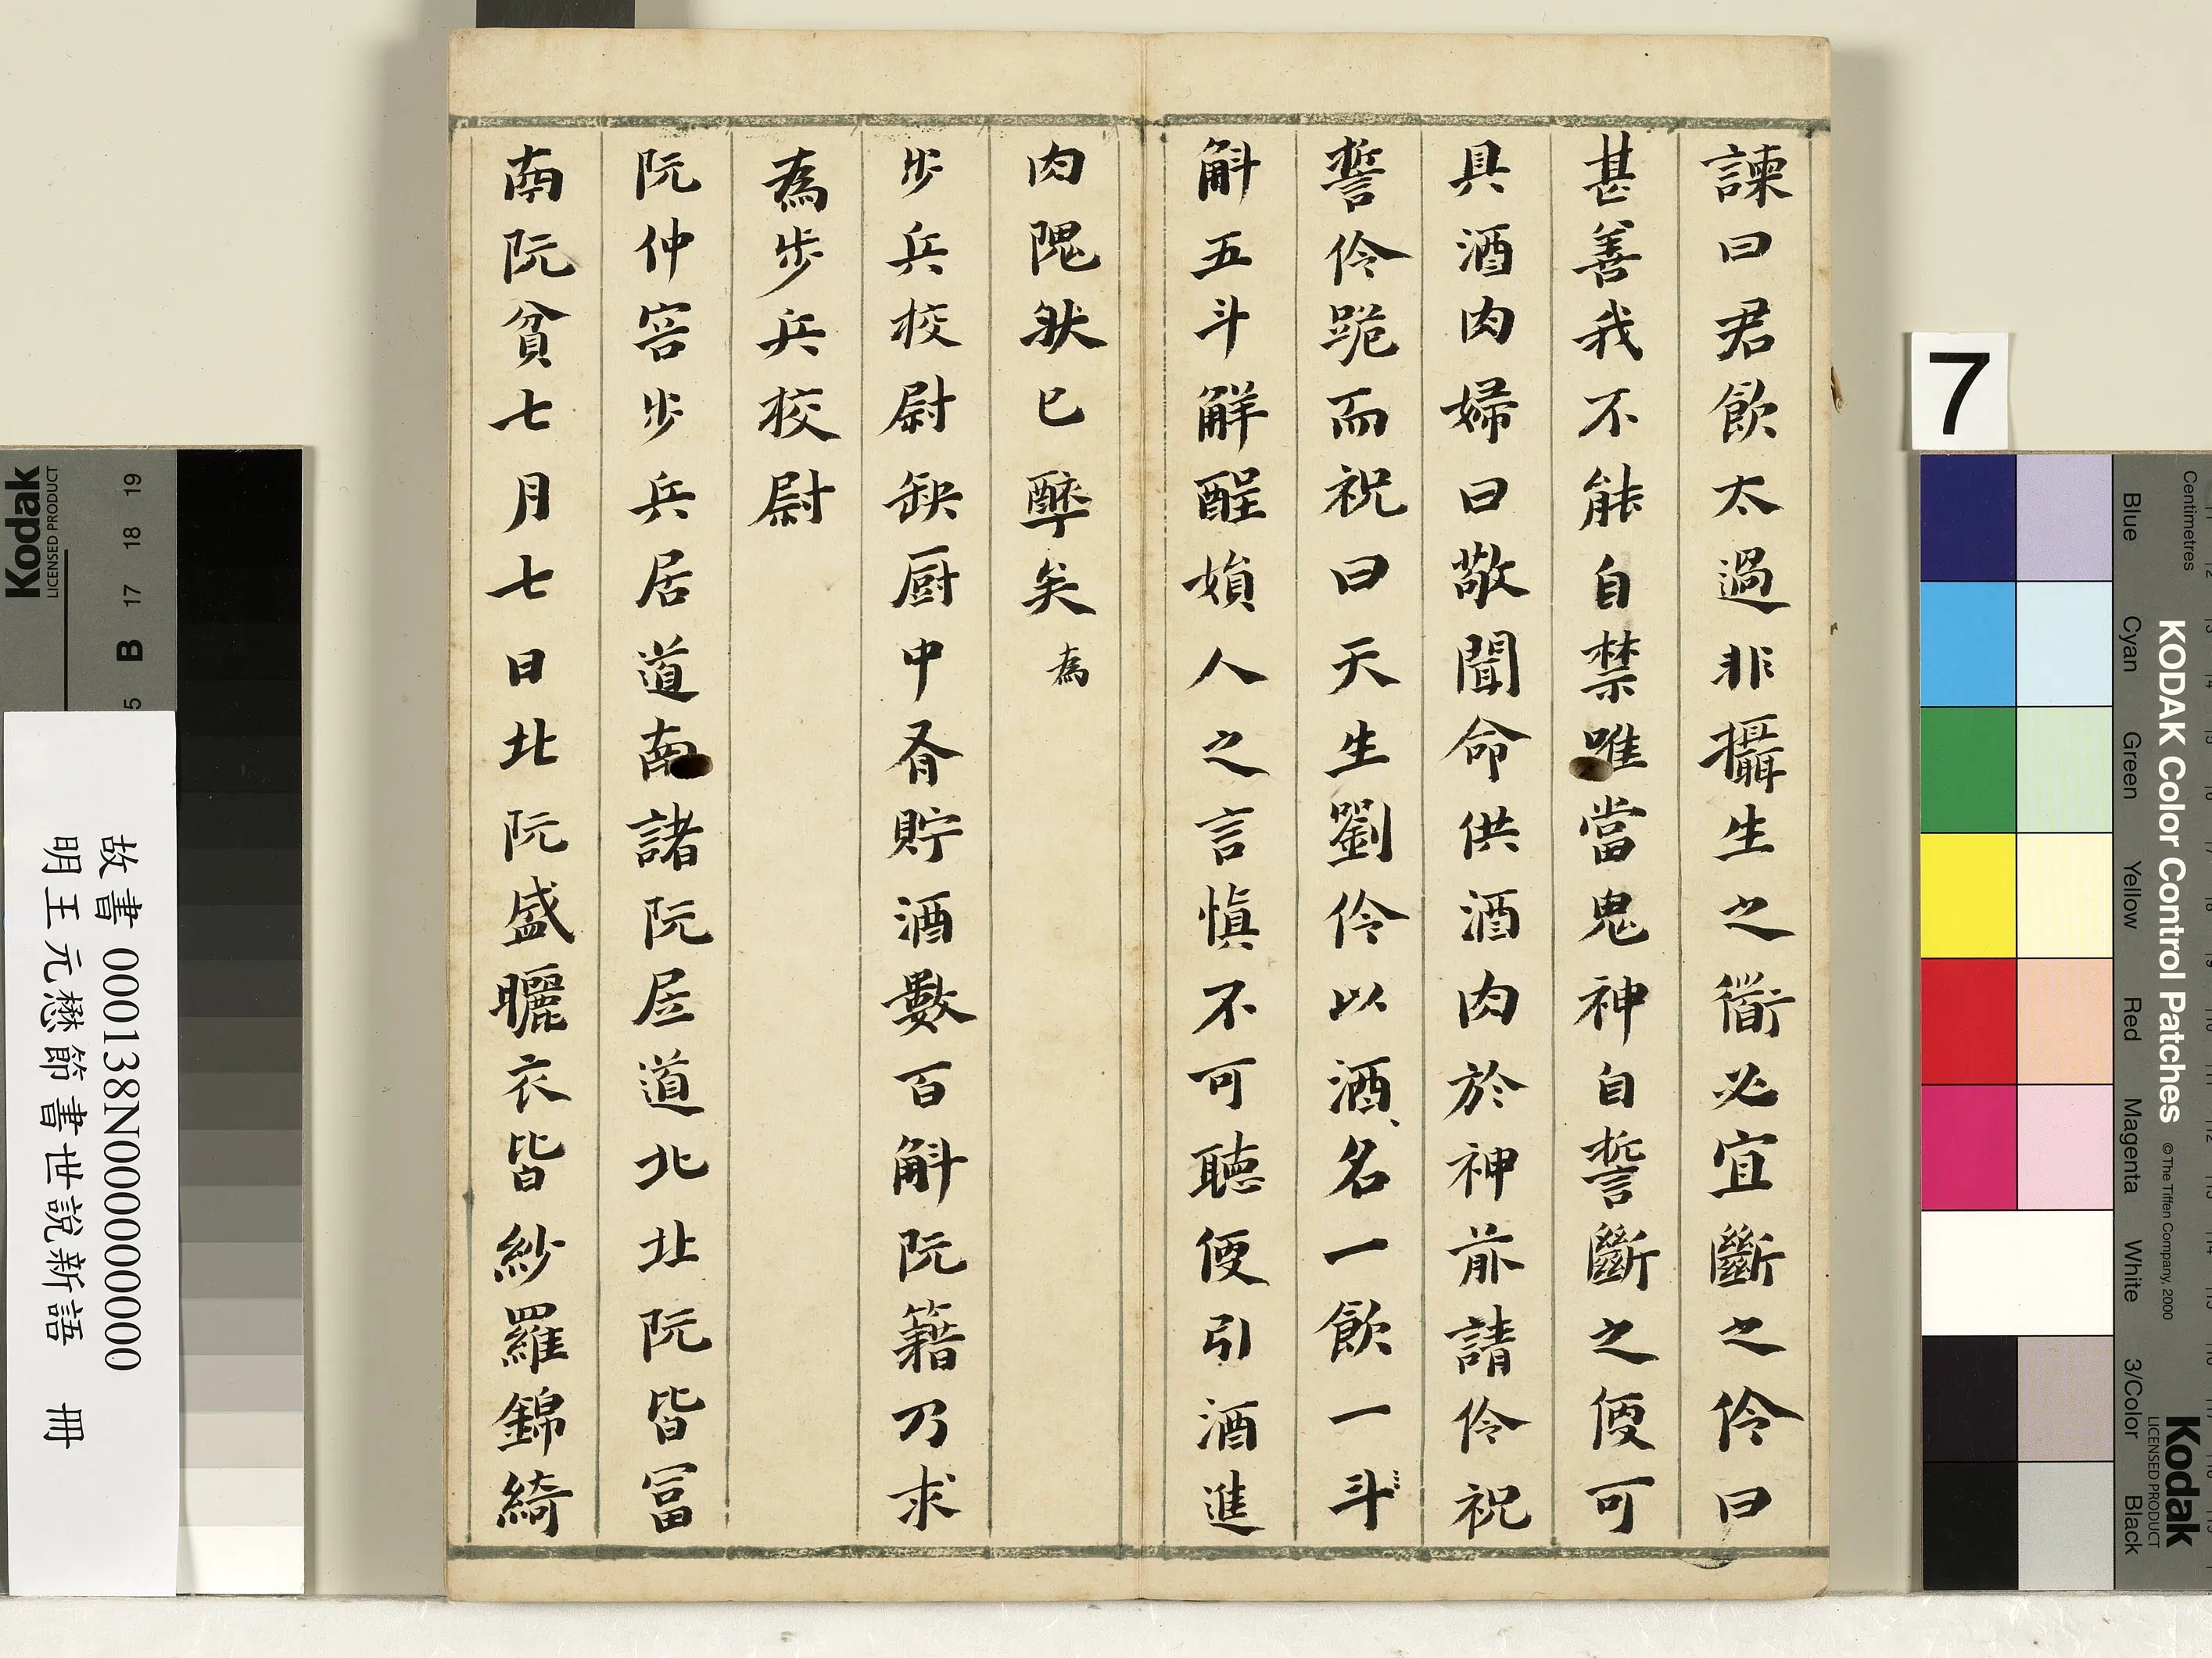 諫曰君飲太過非攝生之衜必宜斷之伶曰
甚善我不能自禁唯當鬼神自誓斷之便可
具酒肉婦曰敬聞命供酒肉於神前請伶祝
誓伶跪而祝曰天生劉伶以酒名一飲一斗
斛五斗解酲媍人之言慎不可聽便引酒進
肉隗狀已醉矣為
步兵校尉缺厨中有貯酒數百斛阮籍乃求
為步兵校尉
阮仲容步兵居道南諸阮居道北北阮皆富
南阮貧七月七日北阮盛曬衣皆紗羅錦綺
故書 000138N000000000
明王元懋節書世說新語 冊
7
Kodak
LICENSED PRODUCT
B 17 18 19
Centimetres
KODAK Color Control Patches
© The Tiffen Company, 2000
Blue Cyan Green Yellow Red Magenta White 3/Color Black
Kodak
LICENSED PRODUCT